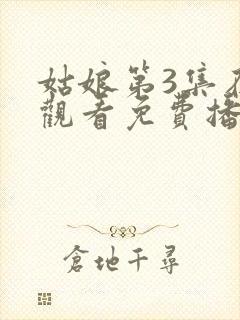 姑娘第3集在
觀看免費播
倉地千尋